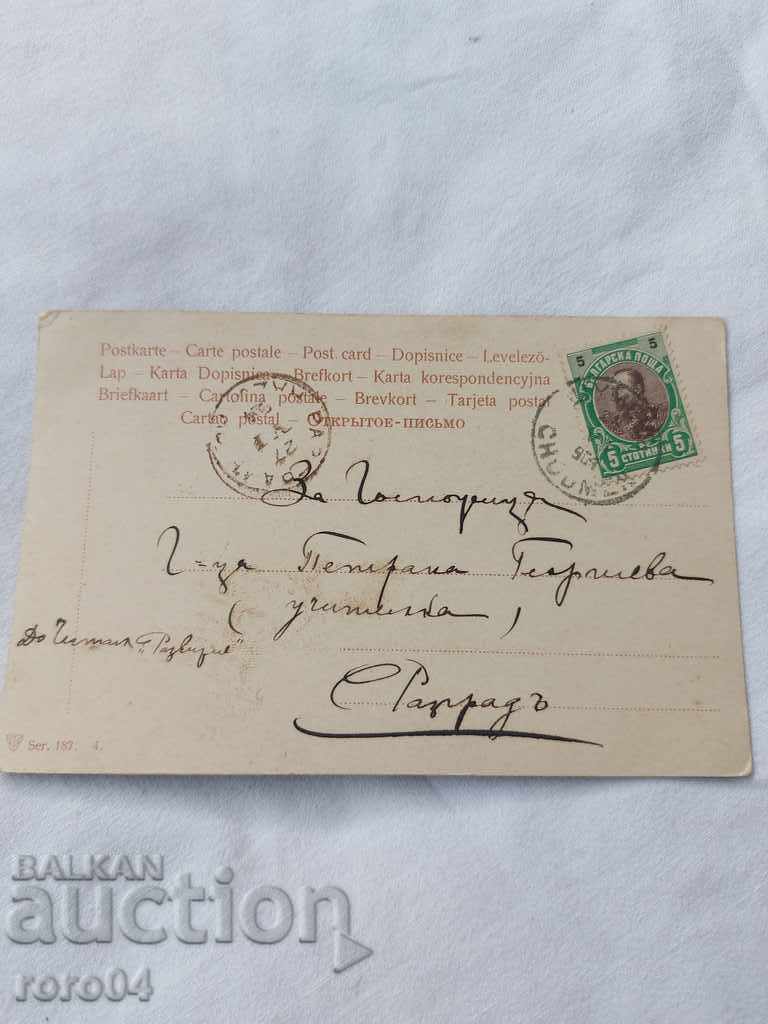 Postkarte – Carte postale – Post card – Dopisnice – Levelező-
Lap – Karta Dopisnica – Brefkort – Karta korespondencyjna
Briefkaart – Cartolina postale – Brevkort – Tarjeta postal
Cartão postal – Открытое-письмо
5 5
БЪЛГАРСКА ПОЩА
5 СТОТИНКИ 5
27
За Госпожица
Г-ца Петрана Георгиева
(учителка)
До Читал. „Развитие"
Разградъ
Ser. 187. 4.
BALKAN
auction
roro04